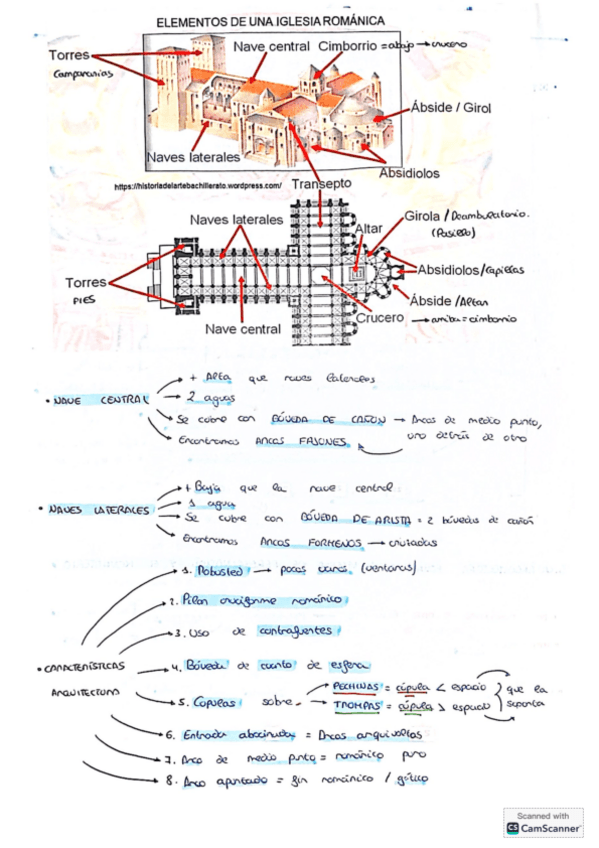 ELEMENTOS DE UNA IGLESIA ROMÁNICA
Torres
Campanarios
Nave central
Cimborrio = abajo → crucero
Ábside / Girol
Naves laterales
Absidiolos
https://historiadelartebachillerato.wordpress.com/
Transepto
Naves laterales
Altar
Girola / Deambulatorio.
(Pasillo)
Absidiolos/capillas
Torres
PIES
Ábside /Altar
Nave central
Crucero → arriba = cimborrio
• NAVE CENTRAL
+ Alta que naves laterales
2 aguas
Se cubre con BÓVEDA DE CAÑÓN → Arcos de medio punto,
uno detrás de otro
Encontramos ARCOS FAJONES.
• NAVES LATERALES
+ Baja que la nave central
1 agua
Se cubre con BÓVEDA DE ARISTA = 2 bóvedas de cañón
Encontramos ARCOS FORMEROS → cruzadas
• CARACTERÍSTICAS
ARQUITECTURA
1. Robustez → pocos vanos (ventanas)
2. Pilar cruciforme románico
3. Uso de contrafuertes
4. Bóveda de cuarto de esfera
5. Cúpulas sobre
PECHINAS = cúpula < espacio
TROMPAS = cúpula > espacio
que la
soporta
6. Entrada abocinada = Arcos arquivoltas
7. Arco de medio punto = románico puro
8. Arco apuntado = fin románico / gótico
Scanned with
CS CamScanner